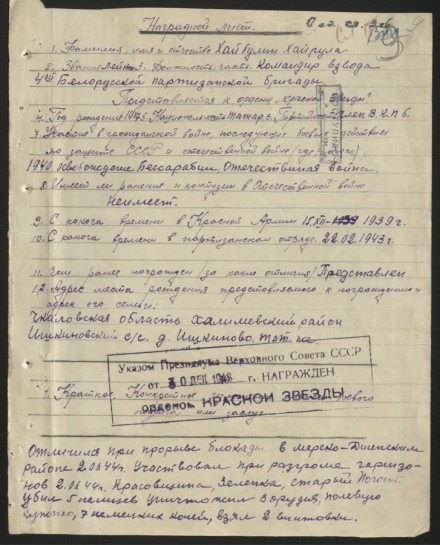 Наградной лист.
1. Фамилия, имя и отчество Хайбулин Хайрула
2. Звание Лейт. 3. Должность часть. Командир взвода
4ой Белорусской партизанской бригады
Представляется к ордену "Красной Звезды"
4. Год рождения 5. Национальность татар. член В.К.П.б.
7. Участие в гражданской войне, последующие боевые действиях
по защите СССР и отечественной войне (где, когда)
1940 освобождение Бессарабии, Отечественная война.
8. Имеет ли ранения и контузии в отечественной войне
Неимеет.
9. С какого времени в Красной Армии 15.XII-1939 г.
10. С какого времени в партизанском отряде. 22.02.1943 г.
11. Чем ранее награжден (за какие отличия) Представлен
12. Адрес места рождения представляемого к награждению и
адрес его семьи:
Чкаловская область Халилевский район
Ишкиновский с/с. д. Ишкиново.
Указом Президиума Верховного Совета СССР
от 30 ДЕК 1948 г. НАГРАЖДЕН
орденом КРАСНОЙ ЗВЕЗДЫ
Краткое, конкретное боевого
или заслуг
Отличился при прорыве блокады в
районе 2.06.44г. Участвовал при разгроме гарнизо-
нов 2.06.44г. Красовщина, Зеленка, старый
Убил 5 немцев уничтожил 3 орудия, полевую
кухню, 7 немецких коней, взял 2 винтовки.